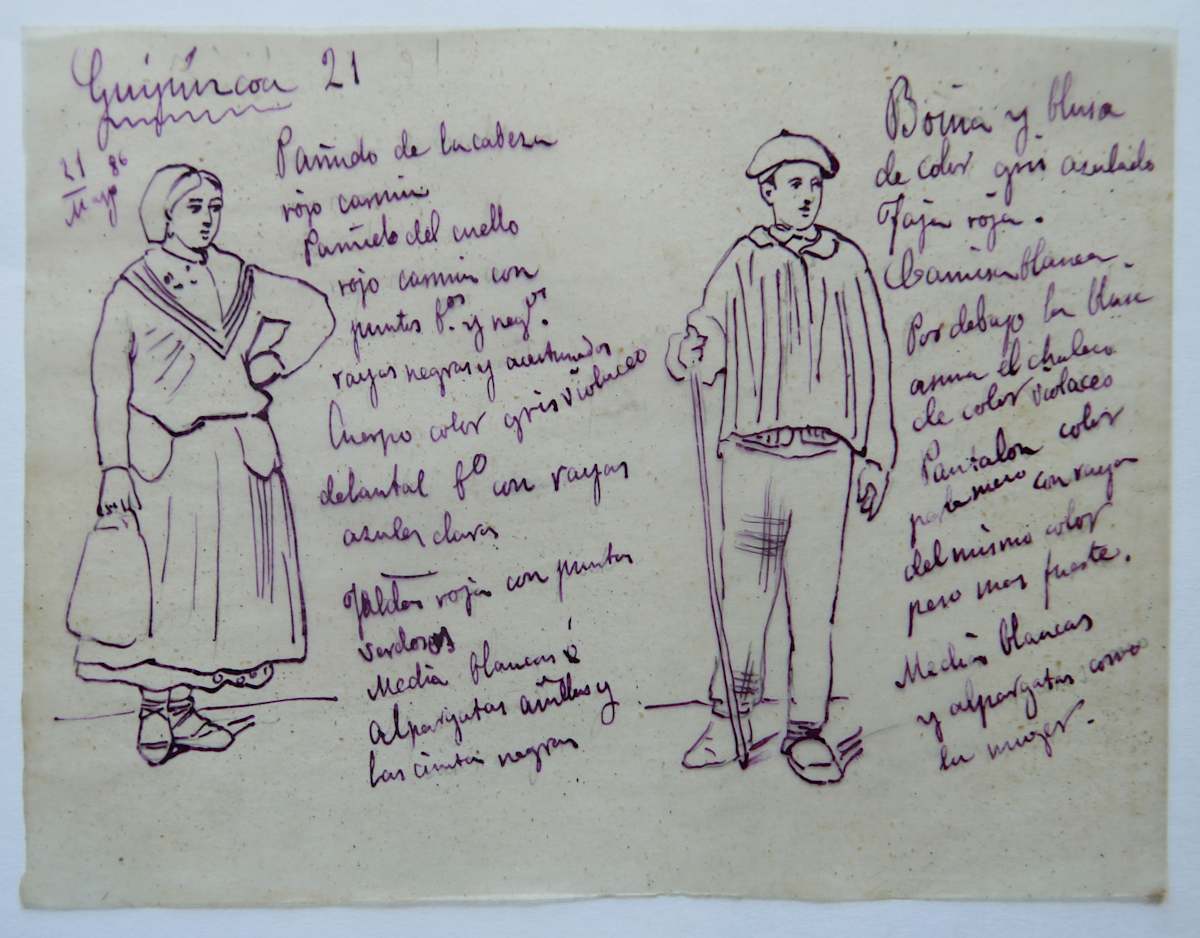 Guipúzcoa 21
21 Mayo 86
Pañuelo de la cabeza
rojo carmin
Pañuelo del cuello
rojo carmin con
puntos b.os y neg.os
rayas negras y aceitunados
Cuerpo color gris violaceo
delantal b.o con rayas
azules claras
Faldas roja con puntos
verdosos
Media blancas
alpargatas y
las cintas negras
Boina y blusa
de color gris azulado
Faja roja.
Camisa blanca.
Por debajo la blusa
asoma el chaleco
de color violaceo
Pantalon color
con rayas
del mismo color
pero mas fuerte.
Medias blancas
y alpargatas como
la muger.